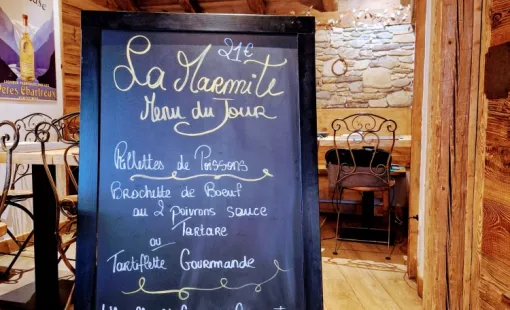 21€
La Marmite
Menu du Jour
Rillettes de Poissons
Brochette de Boeuf
au 2 poivrons sauce
Tartare
ou
Tartiflette Gourmande
Pères Chartreux